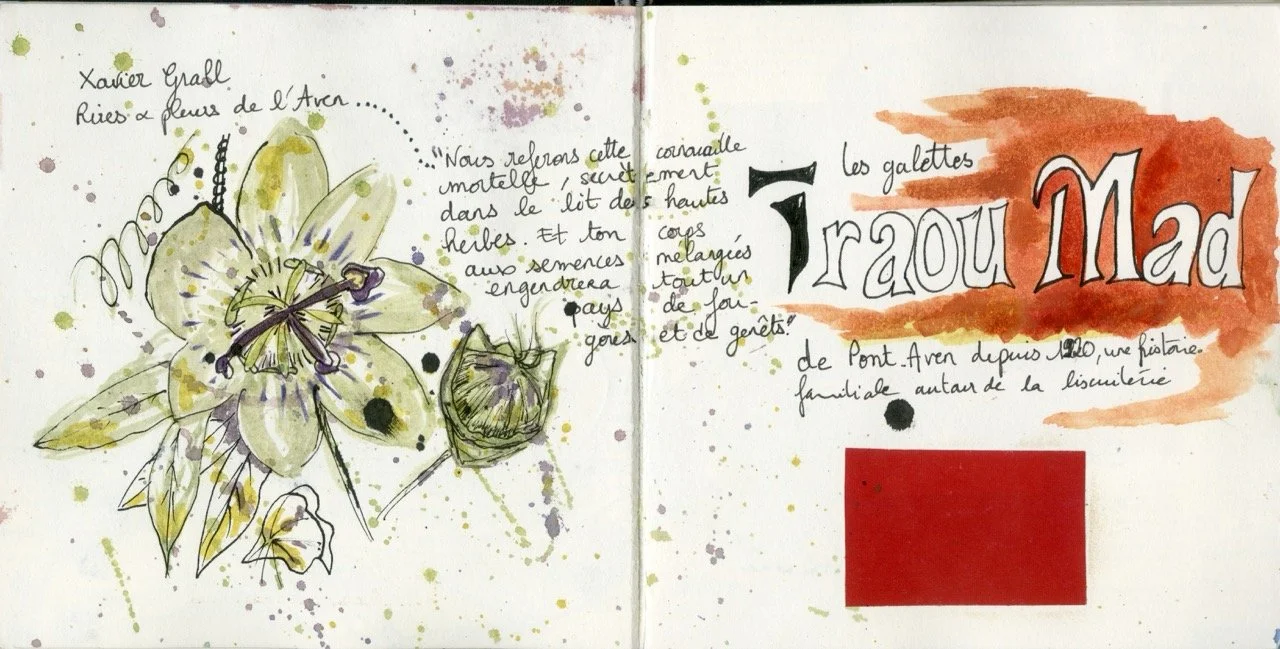 Xavier Grall
Rires & pleurs de l'Aven..........
"Nous referons cette cornouaille
mortelle, secrètement
dans le lit des hautes
herbes. Et ton corps
mélangés
aux semences tout un
engendrera
pays de fou-
gères et de genêts."
les galettes
Traou Mad
de Pont-Aven depuis 1920, une histoire
familiale autour de la biscuiterie